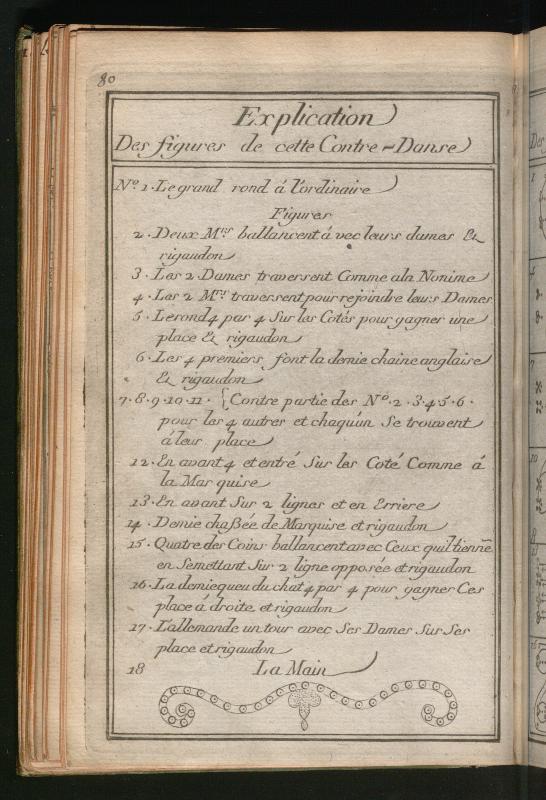 80
Explication
Des figures de cette Contre-Danse
No. 1. Le grand rond á l'ordinaire
Figures
2. Deux Mrs ballancent á vec leurs dames &
rigaudon
3. Les 2 Dames traversent Comme aln Nonime
4. Les 2 Mrs traversent pour rejoindre leurs Dames
5. Le rond 4 par 4 Sur les Cotés pour gagner une
place & rigaudon
6. Les 4 premiers font la demie chaine anglaise
& rigaudon
7. 8. 9. 10. 11. { Contre partie des No. 2. 3. 4 5. 6.
pour les 4 autres et chaqu'un Se trouvent
á leur place
12. En avant 4 et entré Sur les Coté Comme á
la Marquise
13. En avant Sur 2 lignes et en Erriere
14. Demie chaßée de Marquise et rigaudon
15. Quatre des Coins ballancent avec Ceux quil tienñe
en Semettant Sur 2 ligne opposée et rigaudon
16. La demie queu du chat 4 par 4 pour gagner Ces
place á droite et rigaudon
17. L'allemande un tour avec Ses Dames Sur Ses
place et rigaudon
18 La Main